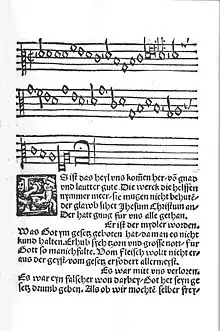 S ist das heyl vns komen her/ võ gnad
vnd lautter gute. Die werck die helffen
nymmer meer/ sie mugen nicht behute/
der glaub sihet Jhesum Christum an/
Der hatt gnug fur vns alle gethan.
Er ist der mydler worden.
Was Got ym gesetz geboten hat/ da man es nicht
kund halten. Erhub sych zorn vnd grosse nott/ fur
Got so manichfalte. Vom fleysch wollt nicht er-
aus der geyst/ vom gesetz erfodert allermeyst.
Es war mitt vns verloren.
Es war eyn falscher won darbey/ Got hett seyn ge
setz drumb geben. Als ob wir mochte selber frey/